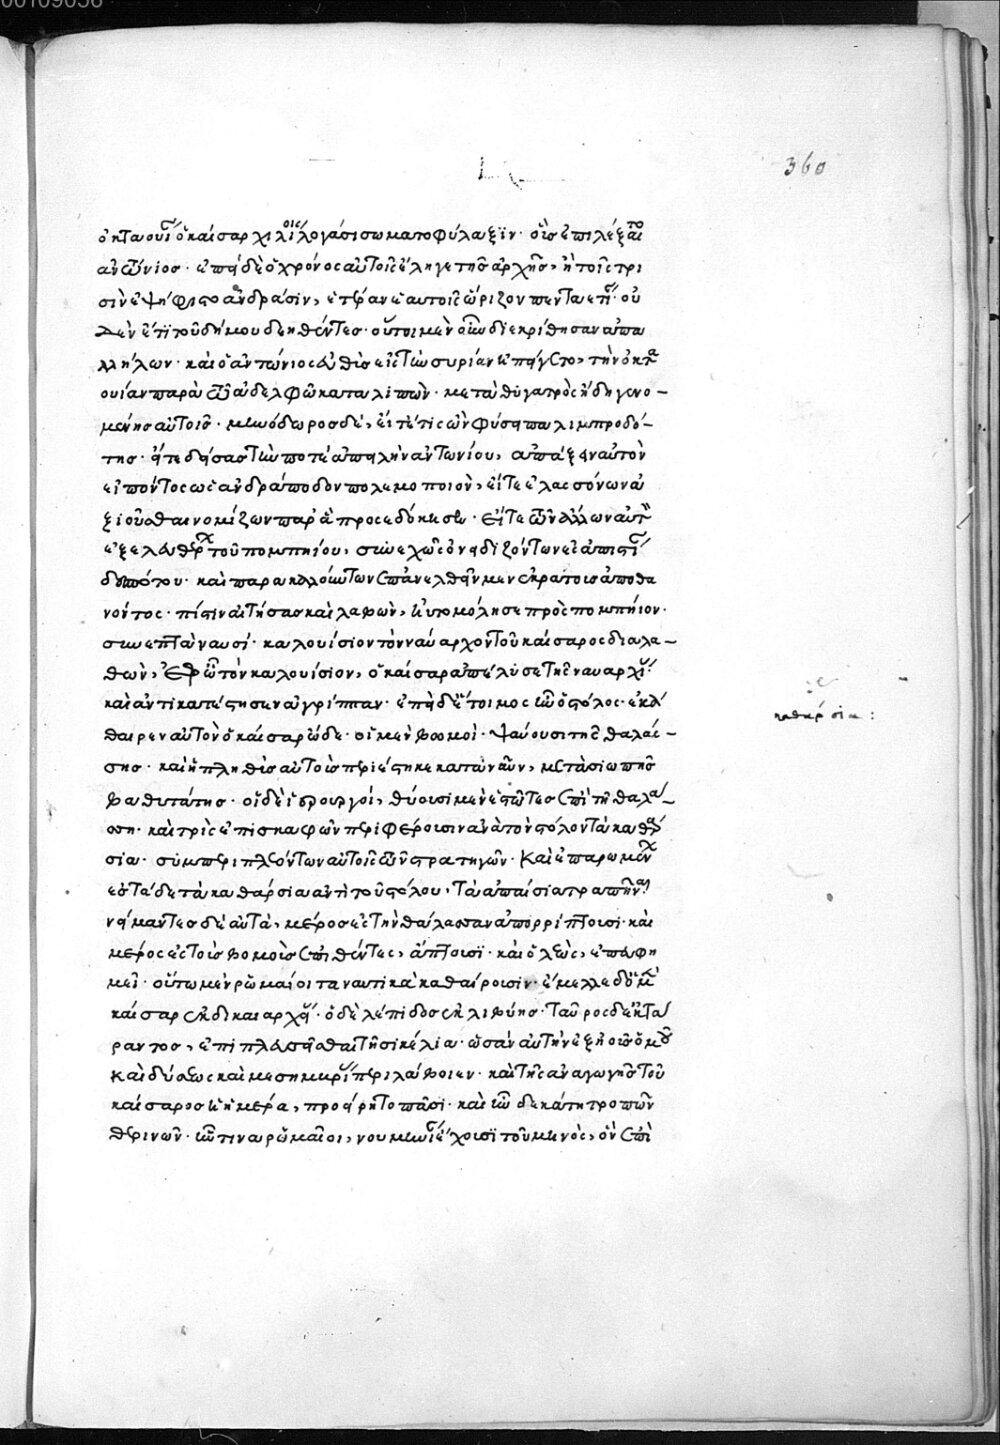 ὀκταουί ὁ καίσαρ χιλίοις λογάσι σωματοφύλαξϊν· οὓς ἐπιλέξαιτο
ἀντώνιος· ἐπεὶ δὲ ὁ χρόνος αὐτοῖς ἔληγε τῆς ἀρχῆς, ἣ τοῖς τρι
σὶν ἐψήφιστο ἀνδράσϊν, ἑτέραν ἑαυτοῖς ὥριζον πενταετί· οὐ
δὲν ἔτι τοῦ δήμου δεηθέντες· οὗτοι μὲν οὖν διεκρίθησαν ἀπα
λλήλων· καὶ ὁ ἀντώνιος εὐθὺς εἰς τὴν συρίαν ἠπείγετο, τὴν ὀκτα
ουίαν παρὰ τῶ ἀδελφῶ καταλιπὼν· μετὰ θυγατρὸς ἤδη γενο-
μένης αὐτοῖς· μηνόδωρος δὲ, εἴτέ τις ὢν φύσει παλιμπροδό-
της· εἴτε δείσας τήν ποτὲ ἀπειλὴν ἀντωνίου, ἀπάξειν αὐτὸν
εἰπόντος ὡς ἀνδράποδον πολεμοποιὸν, εἴτε ἐλασσόνων ἀ
ξιοῦσθαι νομίζων παρ' ἃ προσεδόκησεν· εἴτε τῶν ἄλλων αὐτὸν
ἐξελευθέρ τοῦ πομπηίου, συνεχῶς ὀνειδιζόντων ἐς ἀπιστί
δεσπότου· καὶ παρακαλούντων ἐπανελθεῖν μενεκράτους ἀποθα
νόντος· πίστιν αἰτήσας καὶ λαβὼν, ηὐτομόλησε πρὸς πομπήιον·
συν ἑπτὰ ναυσί· καλουίσιον τὸν ναύαρχον τοῦ καίσαρος διαλα-
θὼν, ἐφ' ὧ τὸν καλουίσιον, ὁ καίσαρ ἀπέλυσε τῆς ναυαρχί
καὶ ἀντικατέστησεν ἀγρίππαν· ἐπεὶ δὲ ἕτοιμος ἦν ὁ στόλος· ἐκά
θαιρεν αὐτὸν ὁ καίσαρ ὧδε· οἱ μὲν βωμοὶ· ψαύουσι τῆς θαλάσ-
σης· καὶ ἡ πληθὺς αὐτοὺς περιέστηκε κατὰ ναῦν, μετὰ σιωπῆς
βαθυτάτης· οἱ δὲ ἱερουργοί, θύουσι μὲν ἑστῶτες ἐπὶ τῆ θαλά-
σση· καὶ τρὶς ἐπὶ σκαφῶν περιφέρουσιν ἀνὰ τὸν στόλον τὰ καθάρ
σια· συμπεριπλεόντων αὐτοῖς τῶν στρατηγῶν· καὶ ἐπαρωμέν
ἐς τάδε τὰ καθάρσια ἀντὶ τοῦ στόλου, τὰ ἀπαίσια τραπῆναι
νείμαντες δὲ αὐτὰ, μέρος ἐς τὴν θάλασσαν ἀπορρίπτουσι· καὶ
μέρος ἐς τοὺς βωμοὺς ἐπιθέντες, ἅπτουσϊ· καὶ ὁ λεὼς, ἐπευφη
μεῖ· οὕτω μὲν ῥωμαῖοι τα ναυτικὰ καθαίρουσιν· ἔμελλε δὲ ὁ μὲν
καίσαρ ἐκ δικαιαρχεί· ὁ δὲ λέπιδος ἐκ λιβύης· ταῦρος δ' ἐκ τά
ραντος, ἐπιπλευσεῖσθαι τῆ σικελία· ὡς ἂν αὐτὴν ἐξ ἠοῦς ὁμοῦ
καὶ δύσεως καὶ μεσημβρί περιλάβοιεν· καὶ τῆς ἀναγωγῆς τοῦ
καίσαρος ἡ ἡμέρα, προείρητο πᾶσι· καὶ ἦν δεκάτη τροπῶν
θερινῶν· ἥν τινα ῥωμαῖοι, νουμηνί ἔχουσϊ τοῦ μηνὸς, ὃν ἐπὶ
καθάρσια:
360